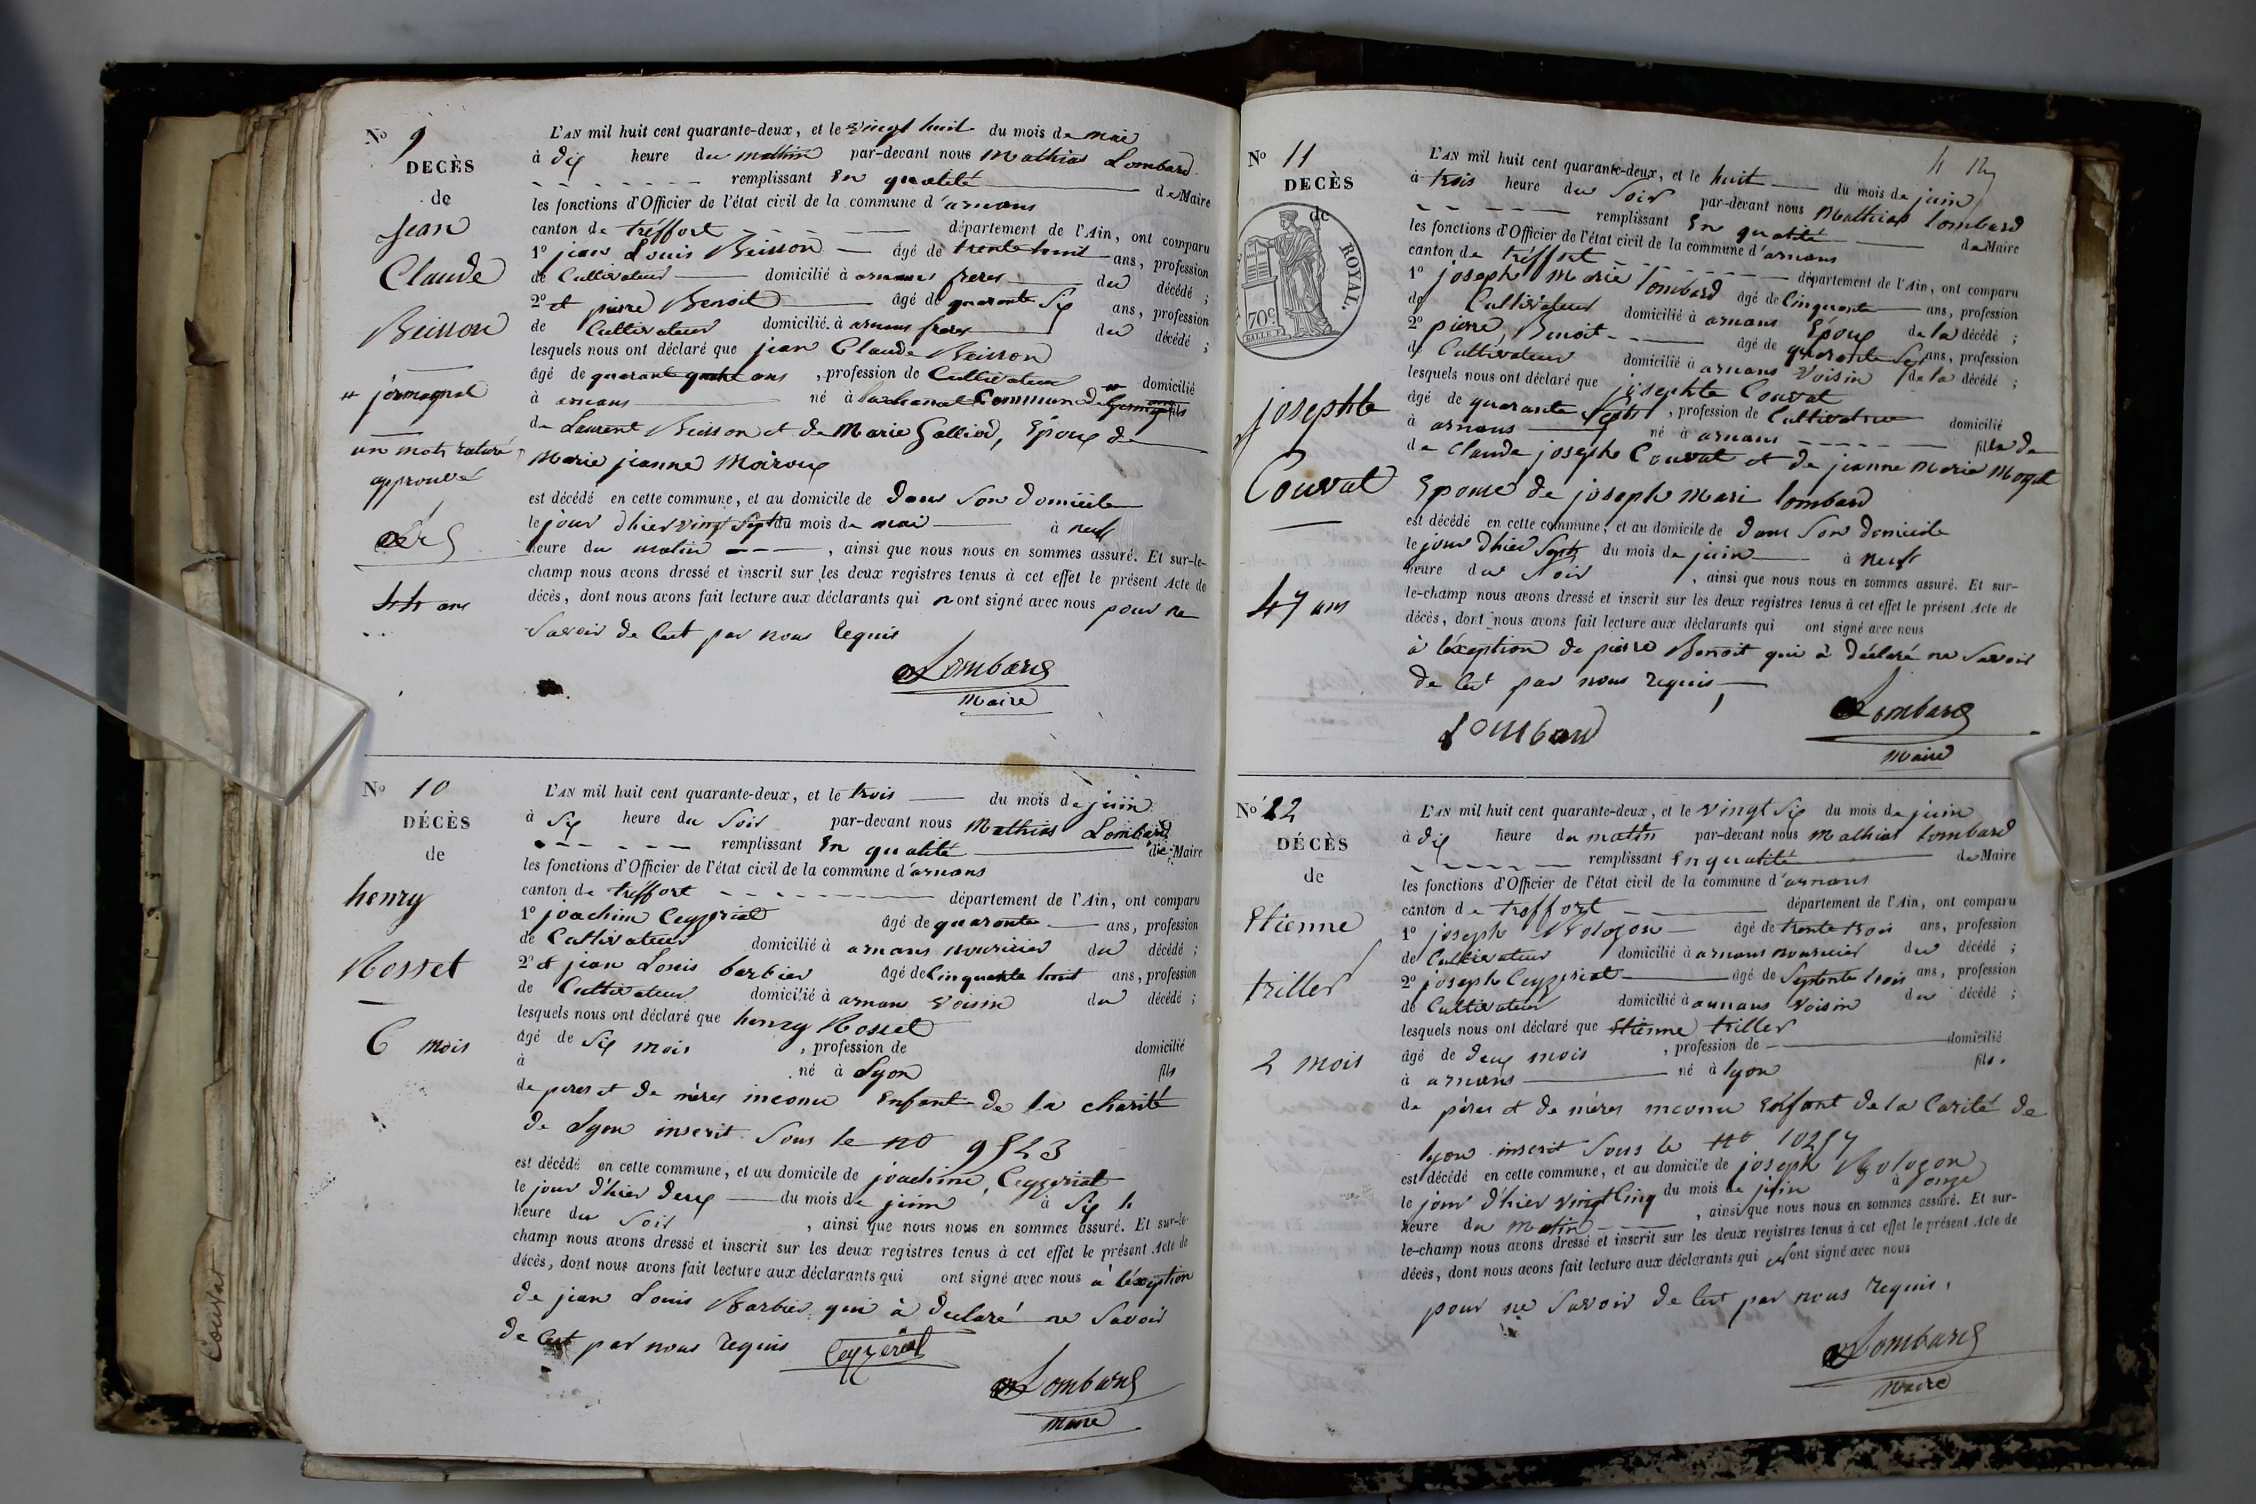 No 9
DECÈS
de
Jean
Claude
Buisson
# jermagnat
un mots raturé
approuvé
44 ans
L'AN mil huit cent quarante-deux, et le vingt huit du mois de mai
à dix heure du mattin par-devant nous Mathias Lombard
remplissant En qualité de Maire
les fonctions d'Officier de l'état civil de la commune d'arnans
canton de tréffort département de l'Ain, ont comparu
1o jean Louis Buisson âgé de trente huit ans, profession
de Cultivateur domicilié à arnans freres du décédé ;
2o et pierre Benoit âgé de quarante Six ans, profession
de Cultivateur domicilié à arnans freres du décédé ;
lesquels nous ont déclaré que jean Claude Buisson
âgé de quarante quatre ans, profession de Cultivateur domicilié
à arnans né à Commune de fils
de Laurent Buisson et de Marie Galliod, Epoux de
Marie jeanne Moiroux
est décédé en cette commune, et au domicile de dans Son domicile
le jour dhier vingt Sept du mois de mai à neuf
heure du matin, ainsi que nous nous en sommes assuré. Et sur-le-
champ nous avons dressé et inscrit sur les deux registres tenus à cet effet le présent Acte de
décès, dont nous avons fait lecture aux déclarants qui n ont signé avec nous pour ne
Savoir de Cut par nous Requis
Lombard
Maire
No 10
DÉCÈS
de
henry
Rosset
6 mois
L'AN mil huit cent quarante-deux, et le trois du mois de juin
à Six heure du Soir par-devant nous Mathias Lombard
remplissant En qualité de Maire
les fonctions d'Officier de l'état civil de la commune d'arnans
canton de tréffort département de l'Ain, ont comparu
1o joachim Ceyzeriat âgé de quarante ans, profession
de Cultivateur domicilié à arnans nouricier du décédé ;
2o et jean Louis barbier âgé de Cinquante huit ans, profession
de Cultivateur domicilié à arnans voisin du décédé ;
lesquels nous ont déclaré que henry Rosset
âgé de Six mois, profession de domicilié
à né à Lyon fils
de peres et de mères inconu Enfant de la charité
de Lyon inscrit Sous le no 9523
est décédé en cette commune, et au domicile de joachim Ceyzeriat
le jour d'hier deux du mois de juin à Six h
heure du Soir, ainsi que nous nous en sommes assuré. Et sur-le-
champ nous avons dressé et inscrit sur les deux registres tenus à cet effet le présent Acte de
décès, dont nous avons fait lecture aux déclarants qui ont signé avec nous à l'éxeption
de jean Louis Barbier qui à declaré ne Savoir
de Cut par nous requis Ceyzériat
Lombard
Maire
Couvat
4
No 11
DECÈS
de
ROYAL.
70c
josephte
Couvat
47 ans
L'AN mil huit cent quarante-deux, et le huit du mois de juin
à trois heure du Soir par-devant nous Mathias Lombard
remplissant En qualité de Maire
les fonctions d'Officier de l'état civil de la commune d'arnans
canton de tréffort département de l'Ain, ont comparu
1o joseph Marie Lombard âgé de Cinquante ans, profession
de Cultivateur domicilié à arnans Epoux de la décédé ;
2o pierre Benoit âgé de quarante Six ans, profession
de Cultivateur domicilié à arnans voisin de la décédé ;
lesquels nous ont déclaré que josephte Couvat
âgé de quarante Sept, profession de Cultivatrice domicilié
à arnans né à arnans fille de
de Claude joseph Couvat et de jeanne Marie Moget
Epouse de joseph Mari Lombard
est décédé en cette commune, et au domicile de dans Son domicile
le jour dhier Sept du mois de juin à neuf
heure du Soir, ainsi que nous nous en sommes assuré. Et sur-
le-champ nous avons dressé et inscrit sur les deux registres tenus à cet effet le présent Acte de
décès, dont nous avons fait lecture aux déclarants qui ont signé avec nous
à l'éxeption de pierre Benoit qui à déclaré ne Savoir
de Cut par nous requis
Lombard
Lombard
Maire
No 12
DÉCÈS
de
Etienne
triller
2 mois
L'AN mil huit cent quarante-deux, et le vingt Six du mois de juin
à dix heure du matin par-devant nous Mathias Lombard
remplissant En qualité de Maire
les fonctions d'Officier de l'état civil de la commune d'arnans
canton de treffort département de l'Ain, ont comparu
1o joseph Bologon âgé de trente trois ans, profession
de Cultivateur domicilié à arnans nouricier du décédé ;
2o joseph Ceyzeriat âgé de Septente trois ans, profession
de Cultivateur domicilié à arnans Voisin du décédé ;
lesquels nous ont déclaré que Etienne triller
âgé de deux mois, profession de domicilié
à arnans né à lyon fils.
de pères et de mères inconu Enfant de la Carité de
lyon inscrit Sous le No 10257
est décédé en cette commune, et au domicile de joseph Bologon
le jour d'hier vingt Cinq du mois de juin à onze
heure du Matin, ainsi que nous nous en sommes assuré. Et sur-
le-champ nous avons dressé et inscrit sur les deux registres tenus à cet effet le présent Acte de
décès, dont nous avons fait lecture aux déclarants qui n ont signé avec nous
pour ne Savoir de Cut par nous requis.
Lombard
Maire